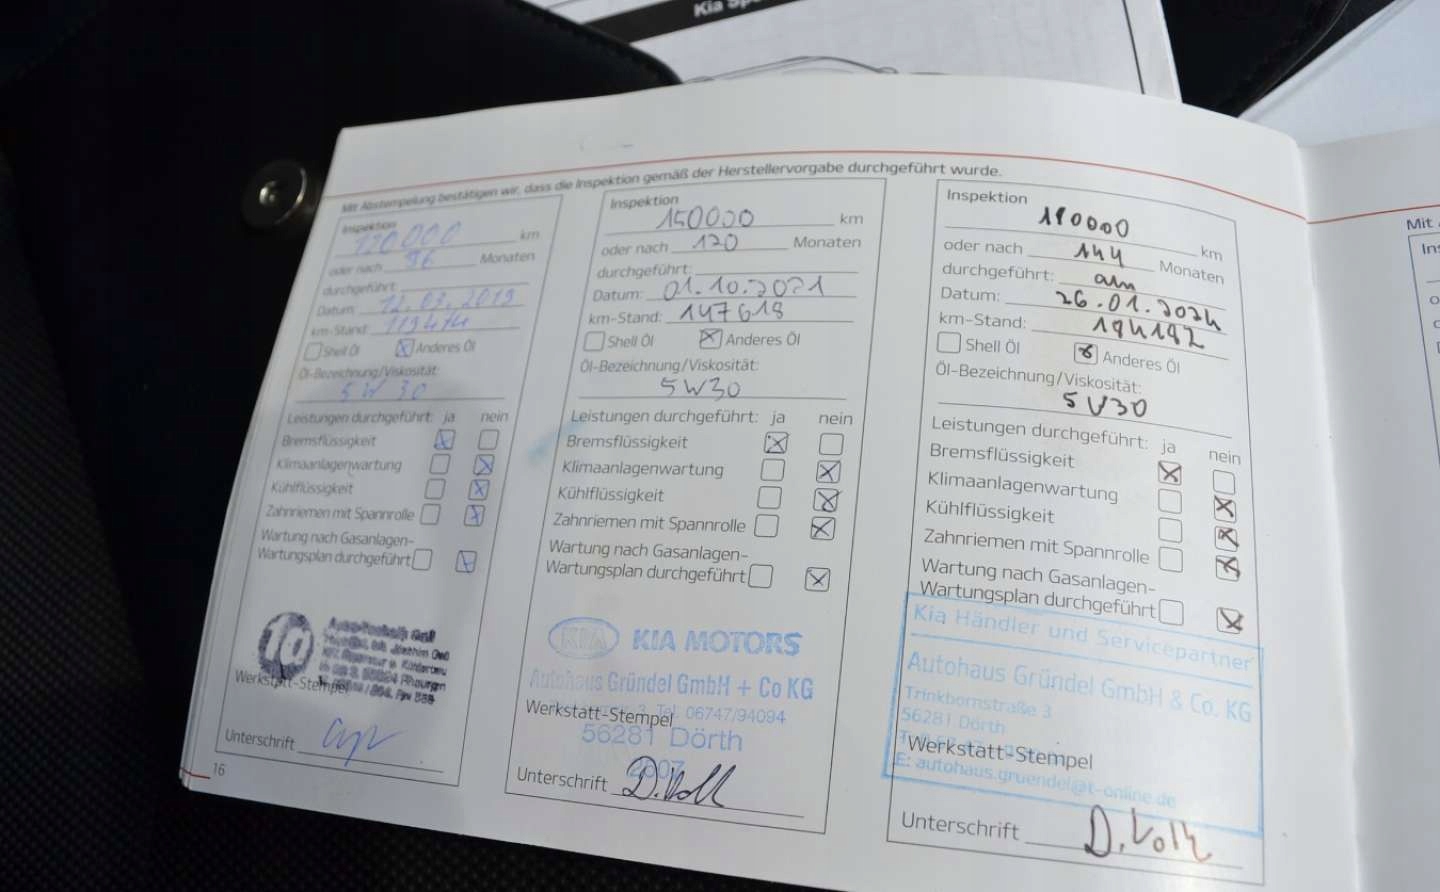 Kia
Mit Abstempelung bestätigen wir, dass die Inspektion gemäß der Herstellervorgabe durchgeführt wurde.
Inspektion
120000 km
oder nach 96 Monaten
durchgeführt:
Datum: 12.03.2019
km-Stand: 119414
Shell Öl Anderes Öl
Öl-Bezeichnung/Viskosität:
5W30
Leistungen durchgeführt: ja nein
Bremsflüssigkeit
Klimaanlagenwartung
Kühlflüssigkeit
Zahnriemen mit Spannrolle
Wartung nach Gasanlagen-
Wartungsplan durchgeführt
Werkstatt-Stempel
Unterschrift
16
Inspektion
150000 km
oder nach 120 Monaten
durchgeführt:
Datum: 01.10.2021
km-Stand: 147618
Shell Öl Anderes Öl
Öl-Bezeichnung/Viskosität:
5W30
Leistungen durchgeführt: ja nein
Bremsflüssigkeit
Klimaanlagenwartung
Kühlflüssigkeit
Zahnriemen mit Spannrolle
Wartung nach Gasanlagen-
Wartungsplan durchgeführt
KIA KIA MOTORS
Autohaus Gründel GmbH + Co KG
3, Tel. 06747/94094
Werkstatt-Stempel
56281 Dörth
2007
Unterschrift D. Voll
Inspektion
180000 km
oder nach 144 Monaten
durchgeführt: am
Datum: 26.01.2024
km-Stand: 194192
Shell Öl Anderes Öl
Öl-Bezeichnung/Viskosität:
5W30
Leistungen durchgeführt: ja nein
Bremsflüssigkeit
Klimaanlagenwartung
Kühlflüssigkeit
Zahnriemen mit Spannrolle
Wartung nach Gasanlagen-
Wartungsplan durchgeführt
Kia Händler und Servicepartner
Autohaus Gründel GmbH & Co. KG
Trinkbornstraße 3
56281 Dörth
Werkstatt-Stempel
E: autohaus.gruendel@t-online.de
Unterschrift
Mit